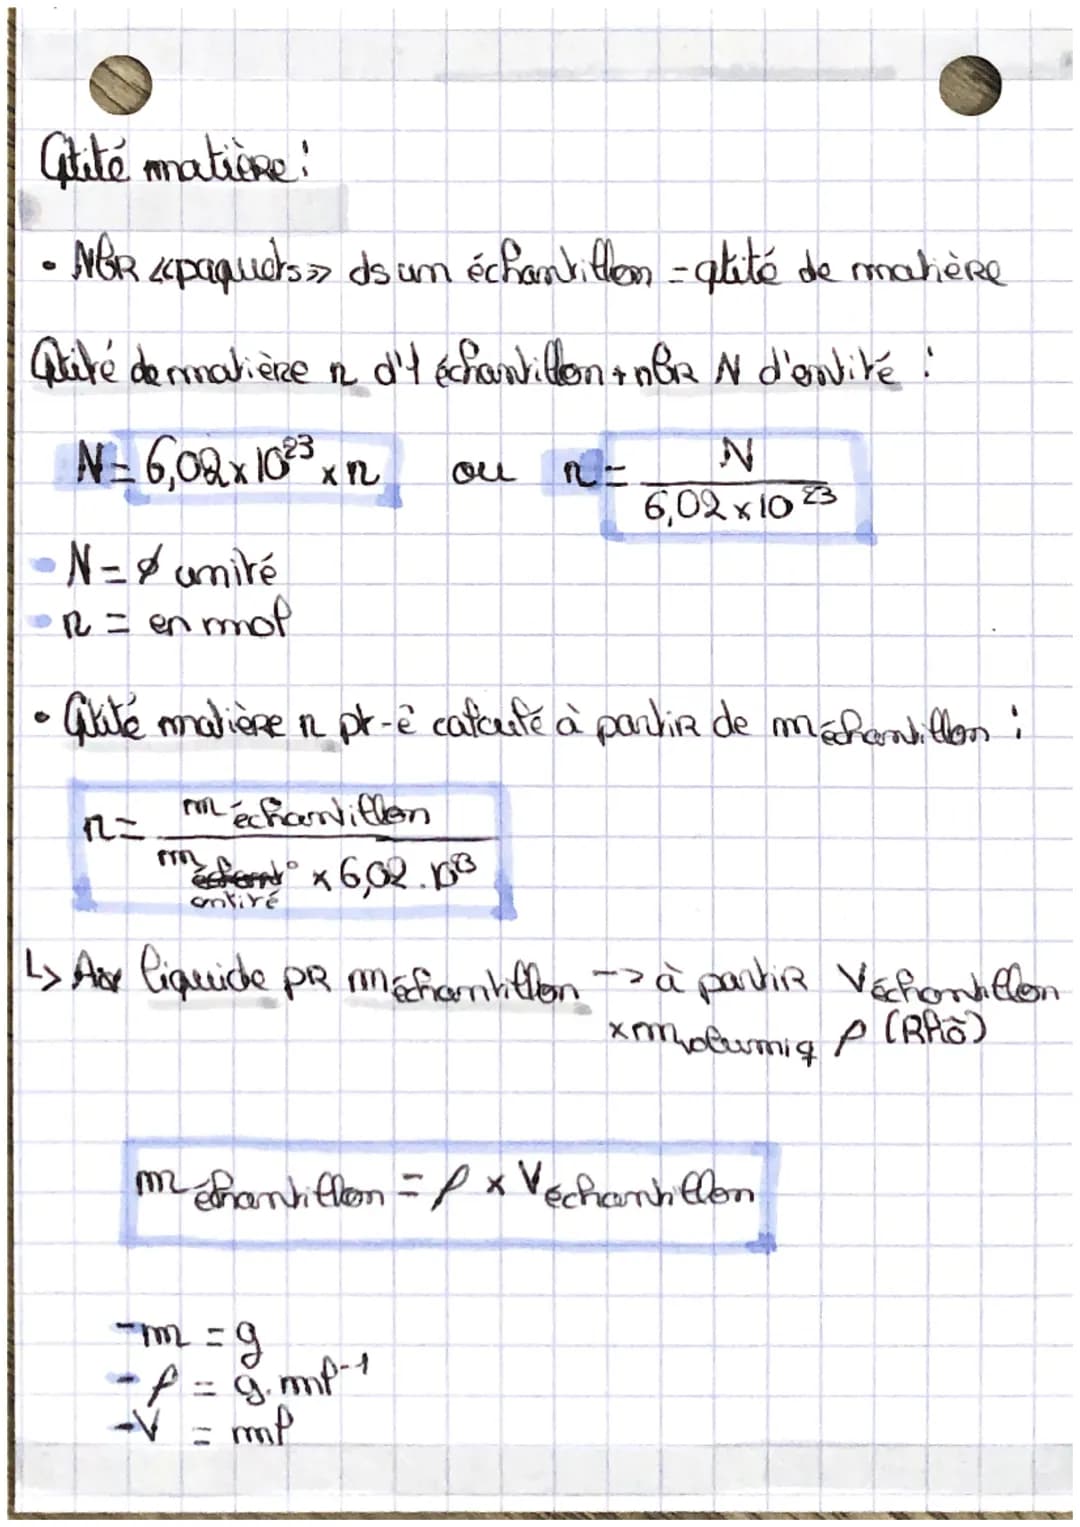 Qtité matière :
• NBR «paquets» ds un échantillon = qtité de matière
Qtité de matière n d'1 échantillon + nbr N d'entité :
N = 6,02 x 10²³ x n ou n = N / 6,02 x 10²³
- N = ∅ unité
- n = en mol
• Qtité matière n pt-ê calculé à partir de m échantillon :
n = m échantillon / m entité x 6,02 . 10²³
↳ liquide pr m échantillon -> à partir V échantillon
x m volumiq ρ (Rhô)
m échantillon = ρ x V échantillon
- m = g
- ρ = g.ml⁻¹
- V = ml